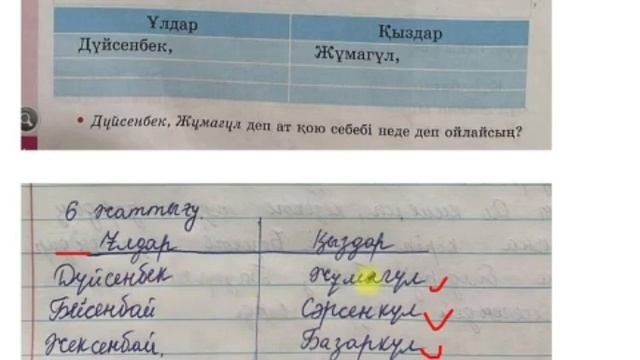 Ұлдар Қыздар
Дүйсенбек, Жұмагүл,
• Дүйсенбек, Жұмагүл деп ат қою себебі неде деп ойлайсың?
6 жаттығу.
Ұлдар Қыздар
Дүйсенбек Жұмагүл
Бейсенбай Сәрсенкүл
Жексенбай, Базаркүл